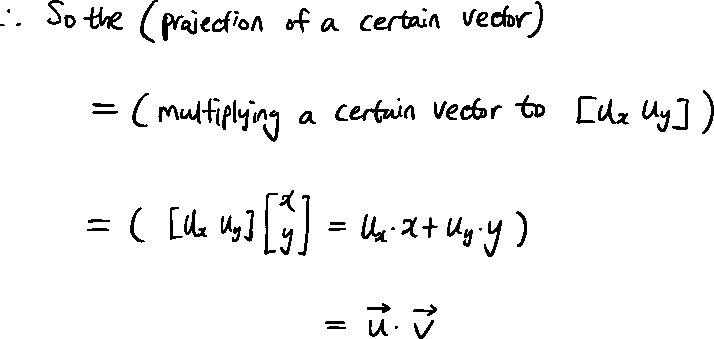 ∴ So the (projection of a certain vector)
= (multiplying a certain vector to [uₓ u_y])
= ( [uₓ u_y] [x y] = uₓ·x + u_y·y )
= u⃗ · v⃗